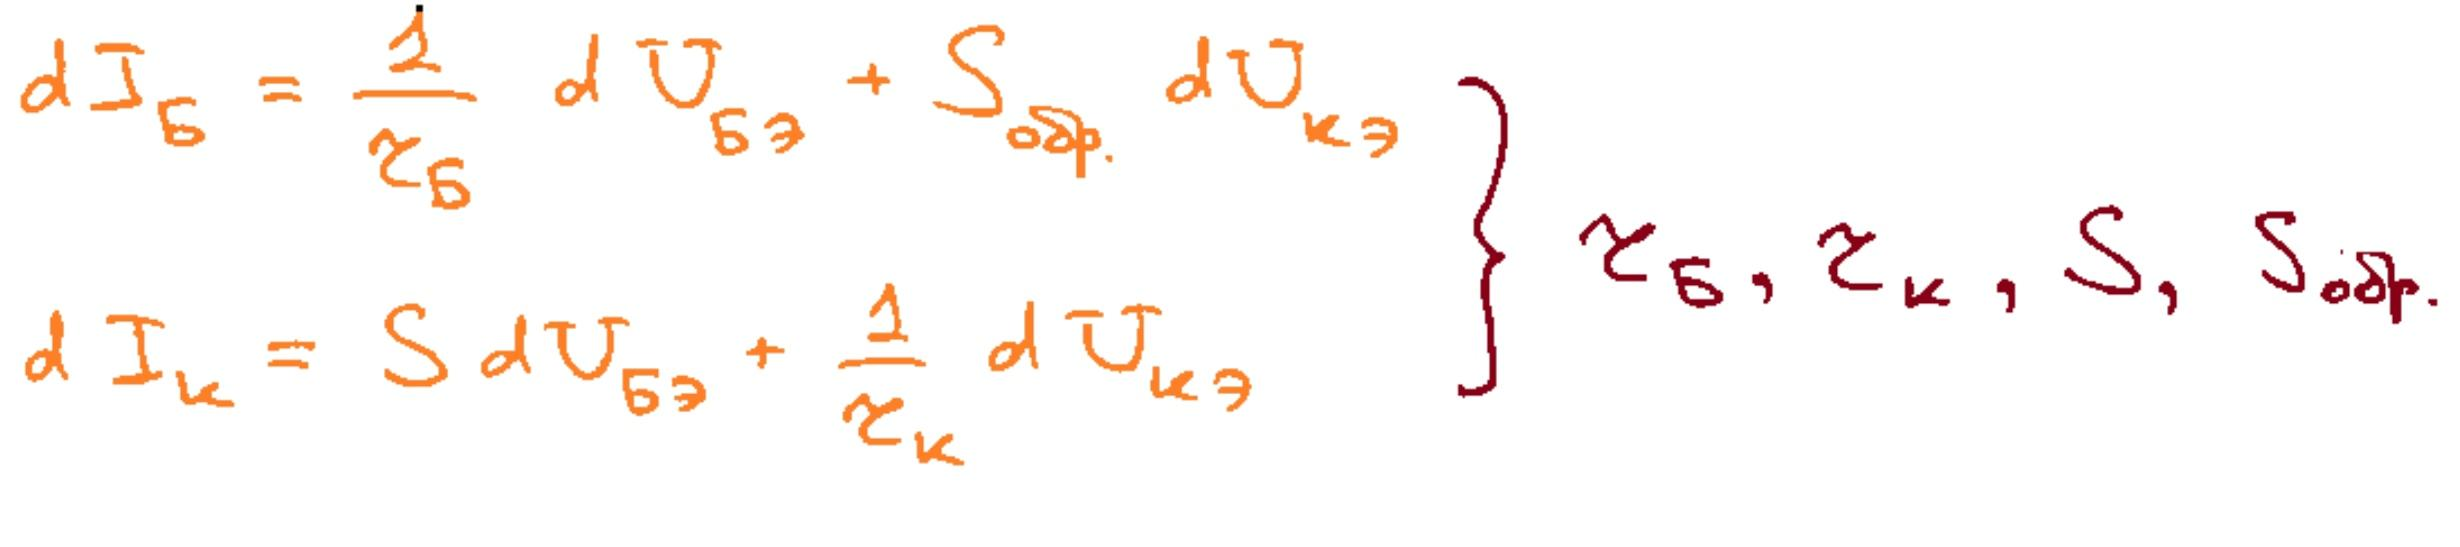 dI_Б = 1/r_Б dU_БЭ + S_обр. dU_кэ
dI_к = S dU_БЭ + 1/r_к dU_кэ
r_Б, r_к, S, S_обр.